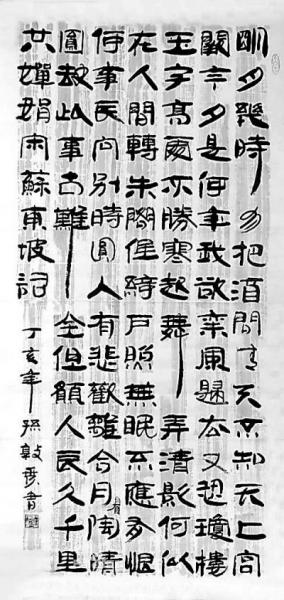 明月幾時有把酒問青天不知天上宮
闕今夕是何年我欲乘風歸去又恐瓊樓
玉宇高處不勝寒起舞弄清影何似
在人間轉朱閣低綺戶照無眠不應有恨
何事長向別時圓人有悲歡離合月有陰晴
圓缺此事古難全但願人長久千里
共嬋娟宋蘇東坡詞
丁亥年孫敦秀書